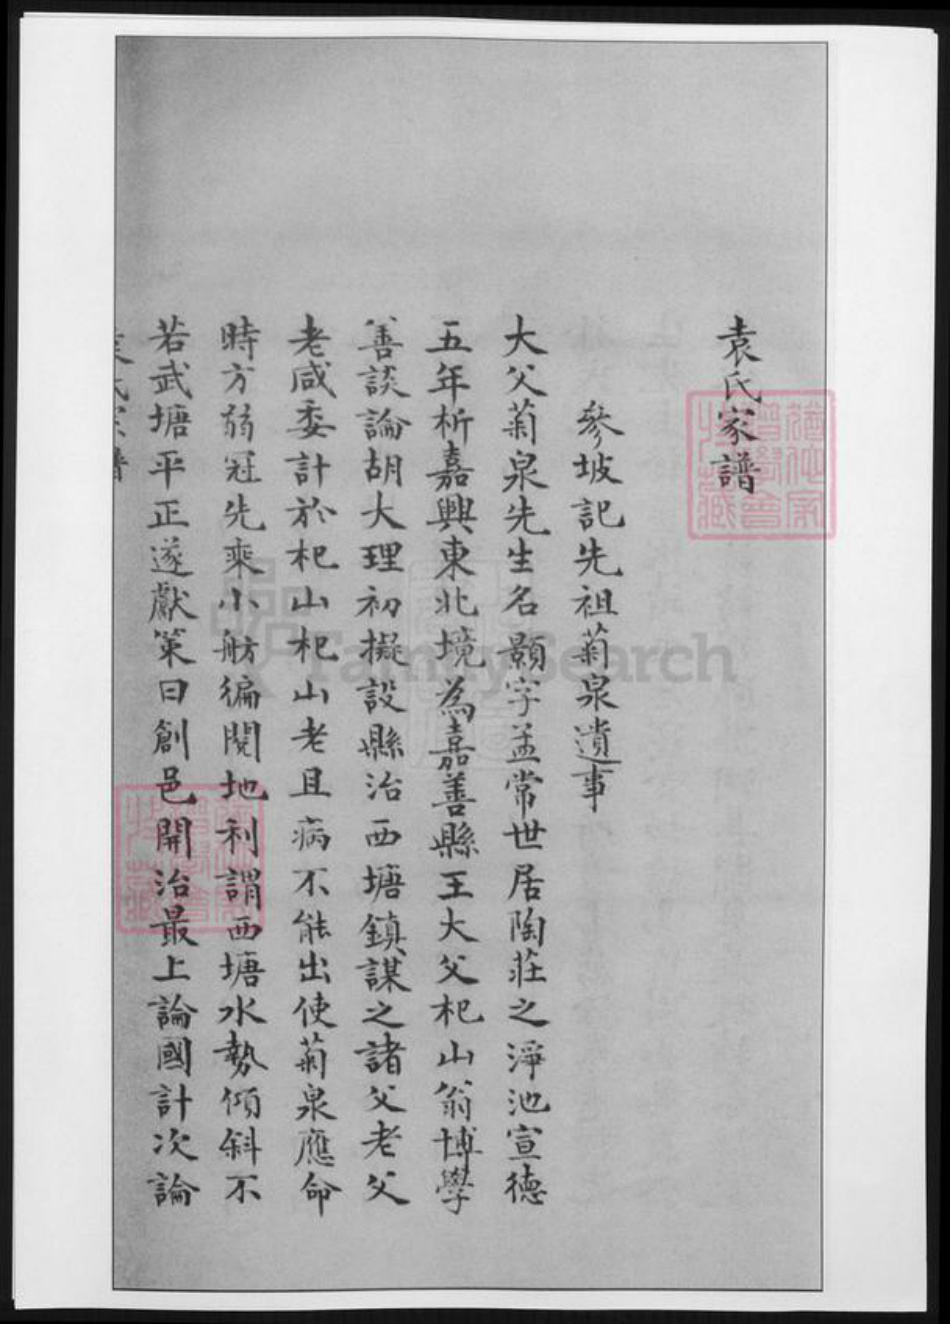 袁氏家譜
參坡記先祖菊泉遺事
大父菊泉先生名顥字孟常世居陶莊之淨池宣德
五年析嘉興東北境為嘉善縣王大父杞山翁博學
善談論胡大理初擬設縣治西塘鎮謀之諸父老父
老咸委計於杞山杞山老且病不能出使菊泉應命
時方弱冠先乘小舫徧閱地利謂西塘水勢傾斜不
若武塘平正遂獻策曰創邑開治最上論國計次論
FamilySearch